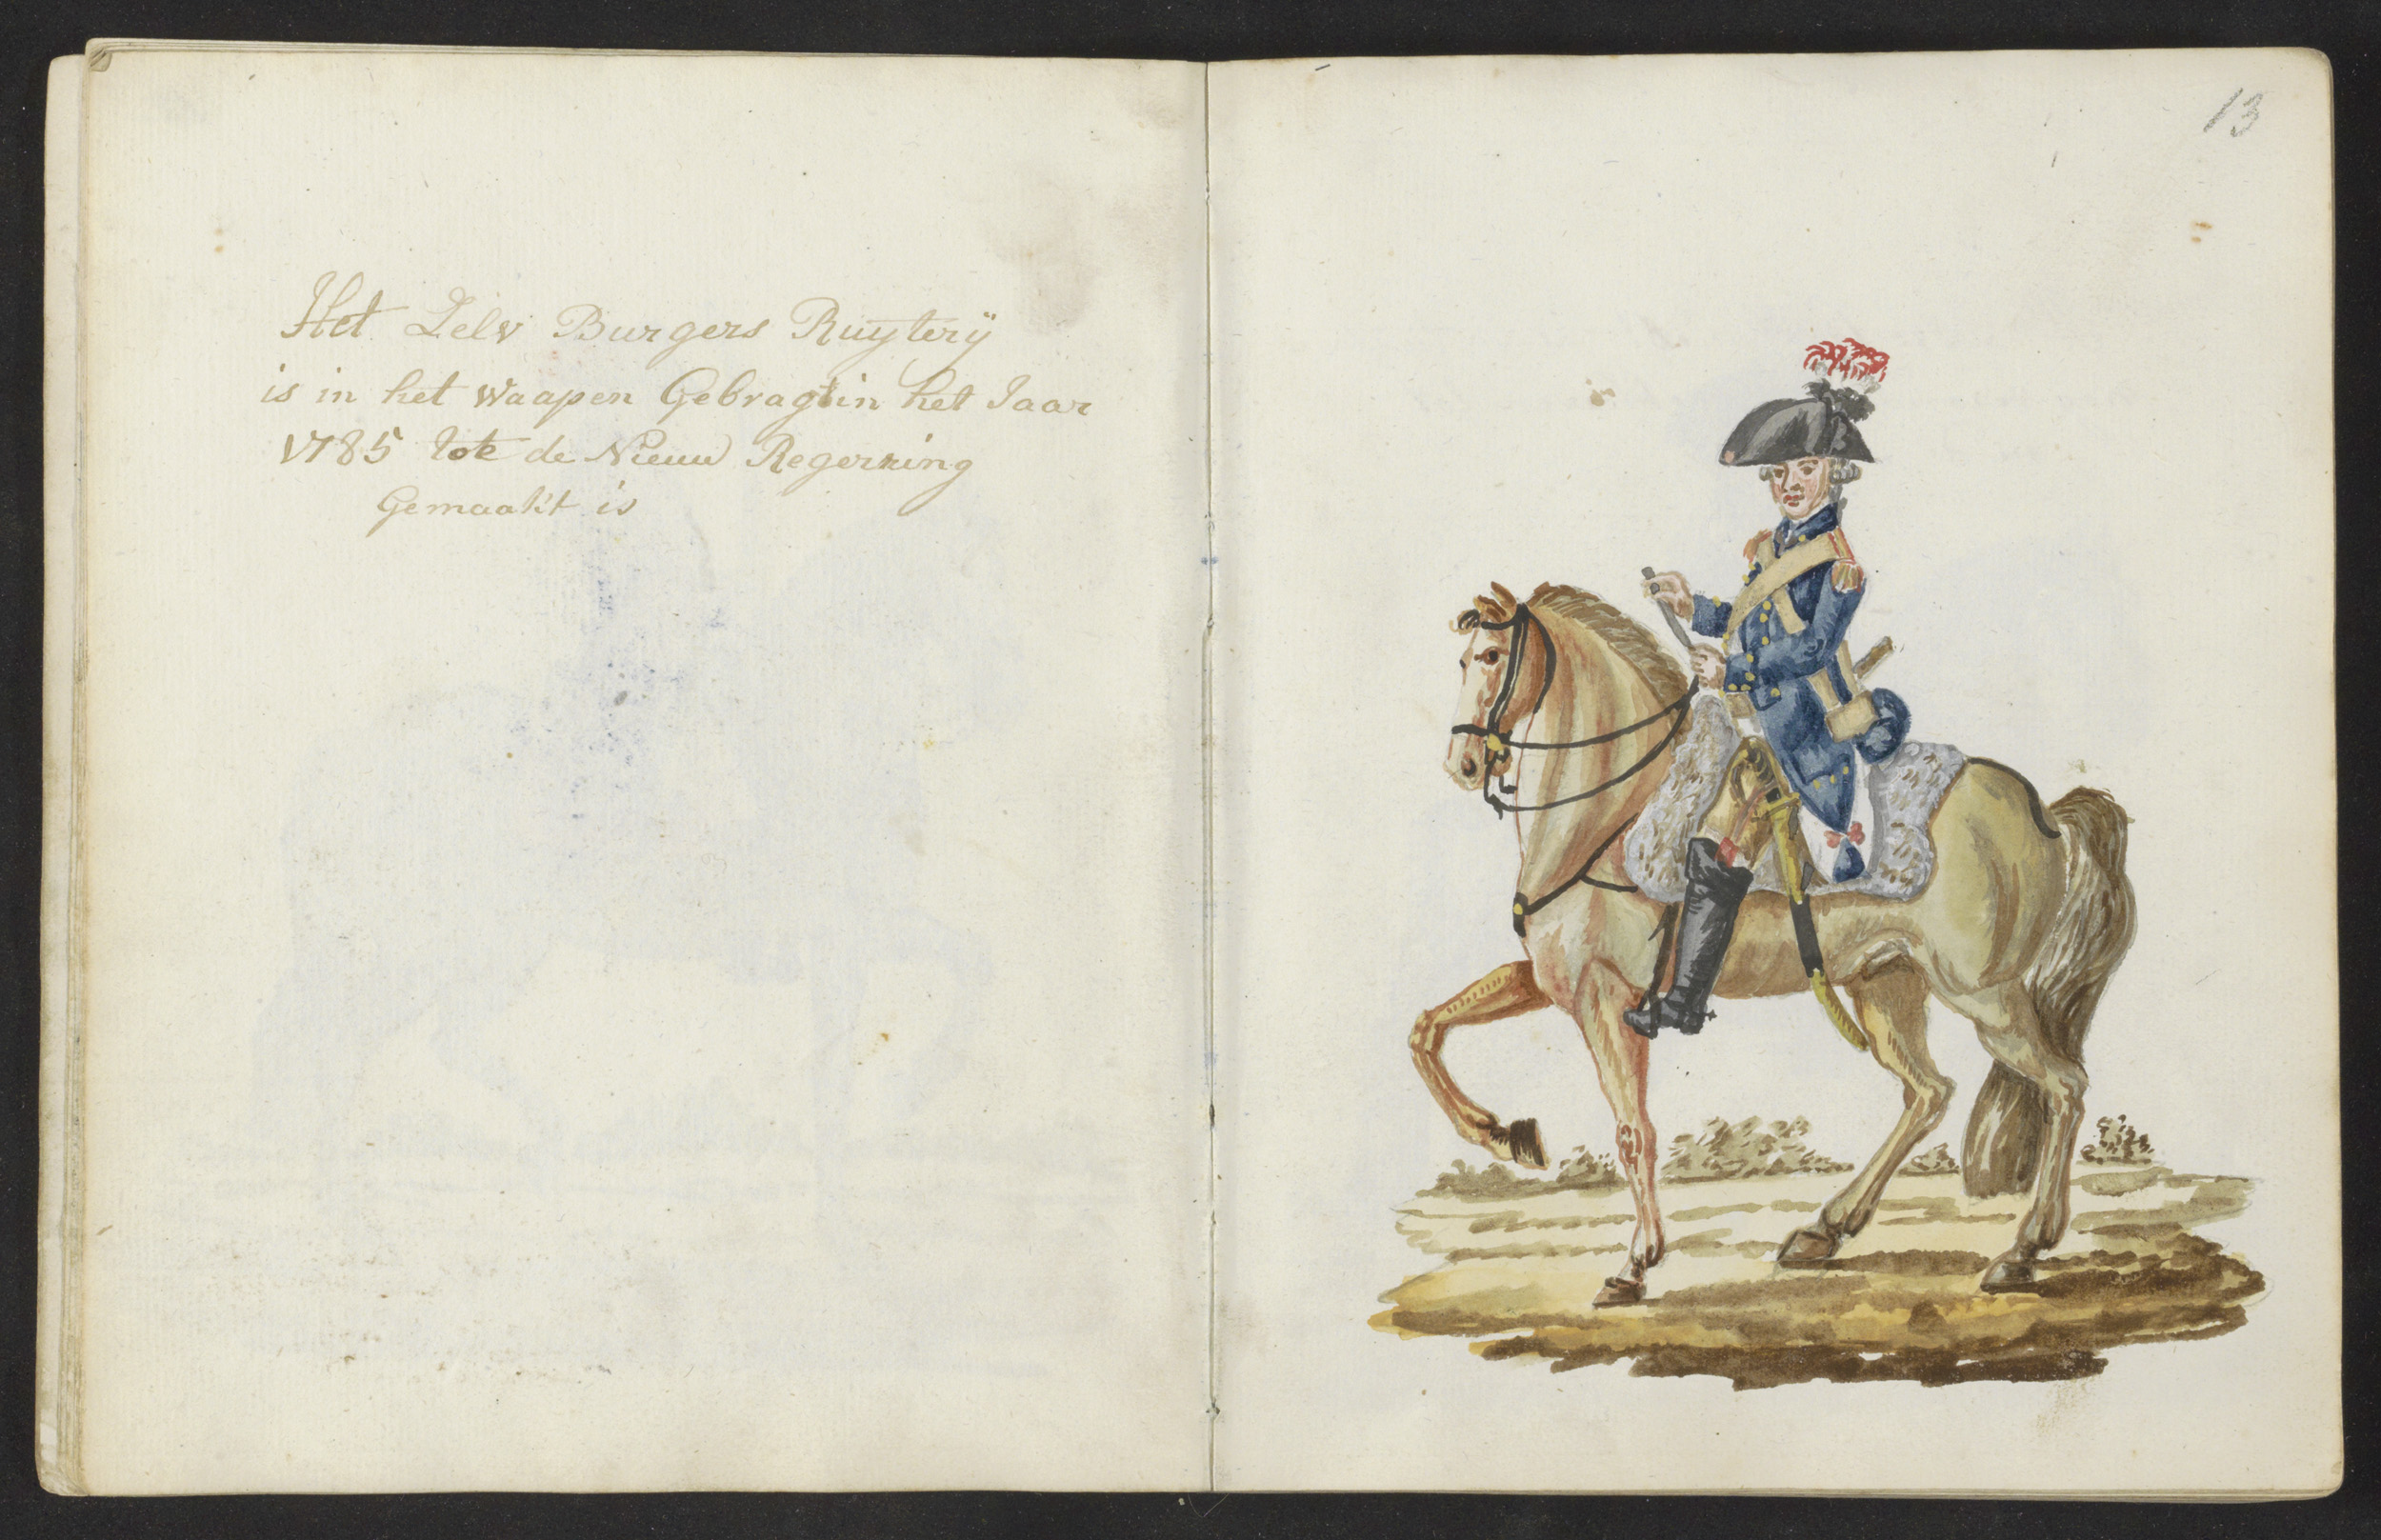 Het Zelv Burgers Ruyterÿ
is in het Waapen Gebragt in het Jaar
1785 tote de Nieuw Regerring
Gemaakt is
13